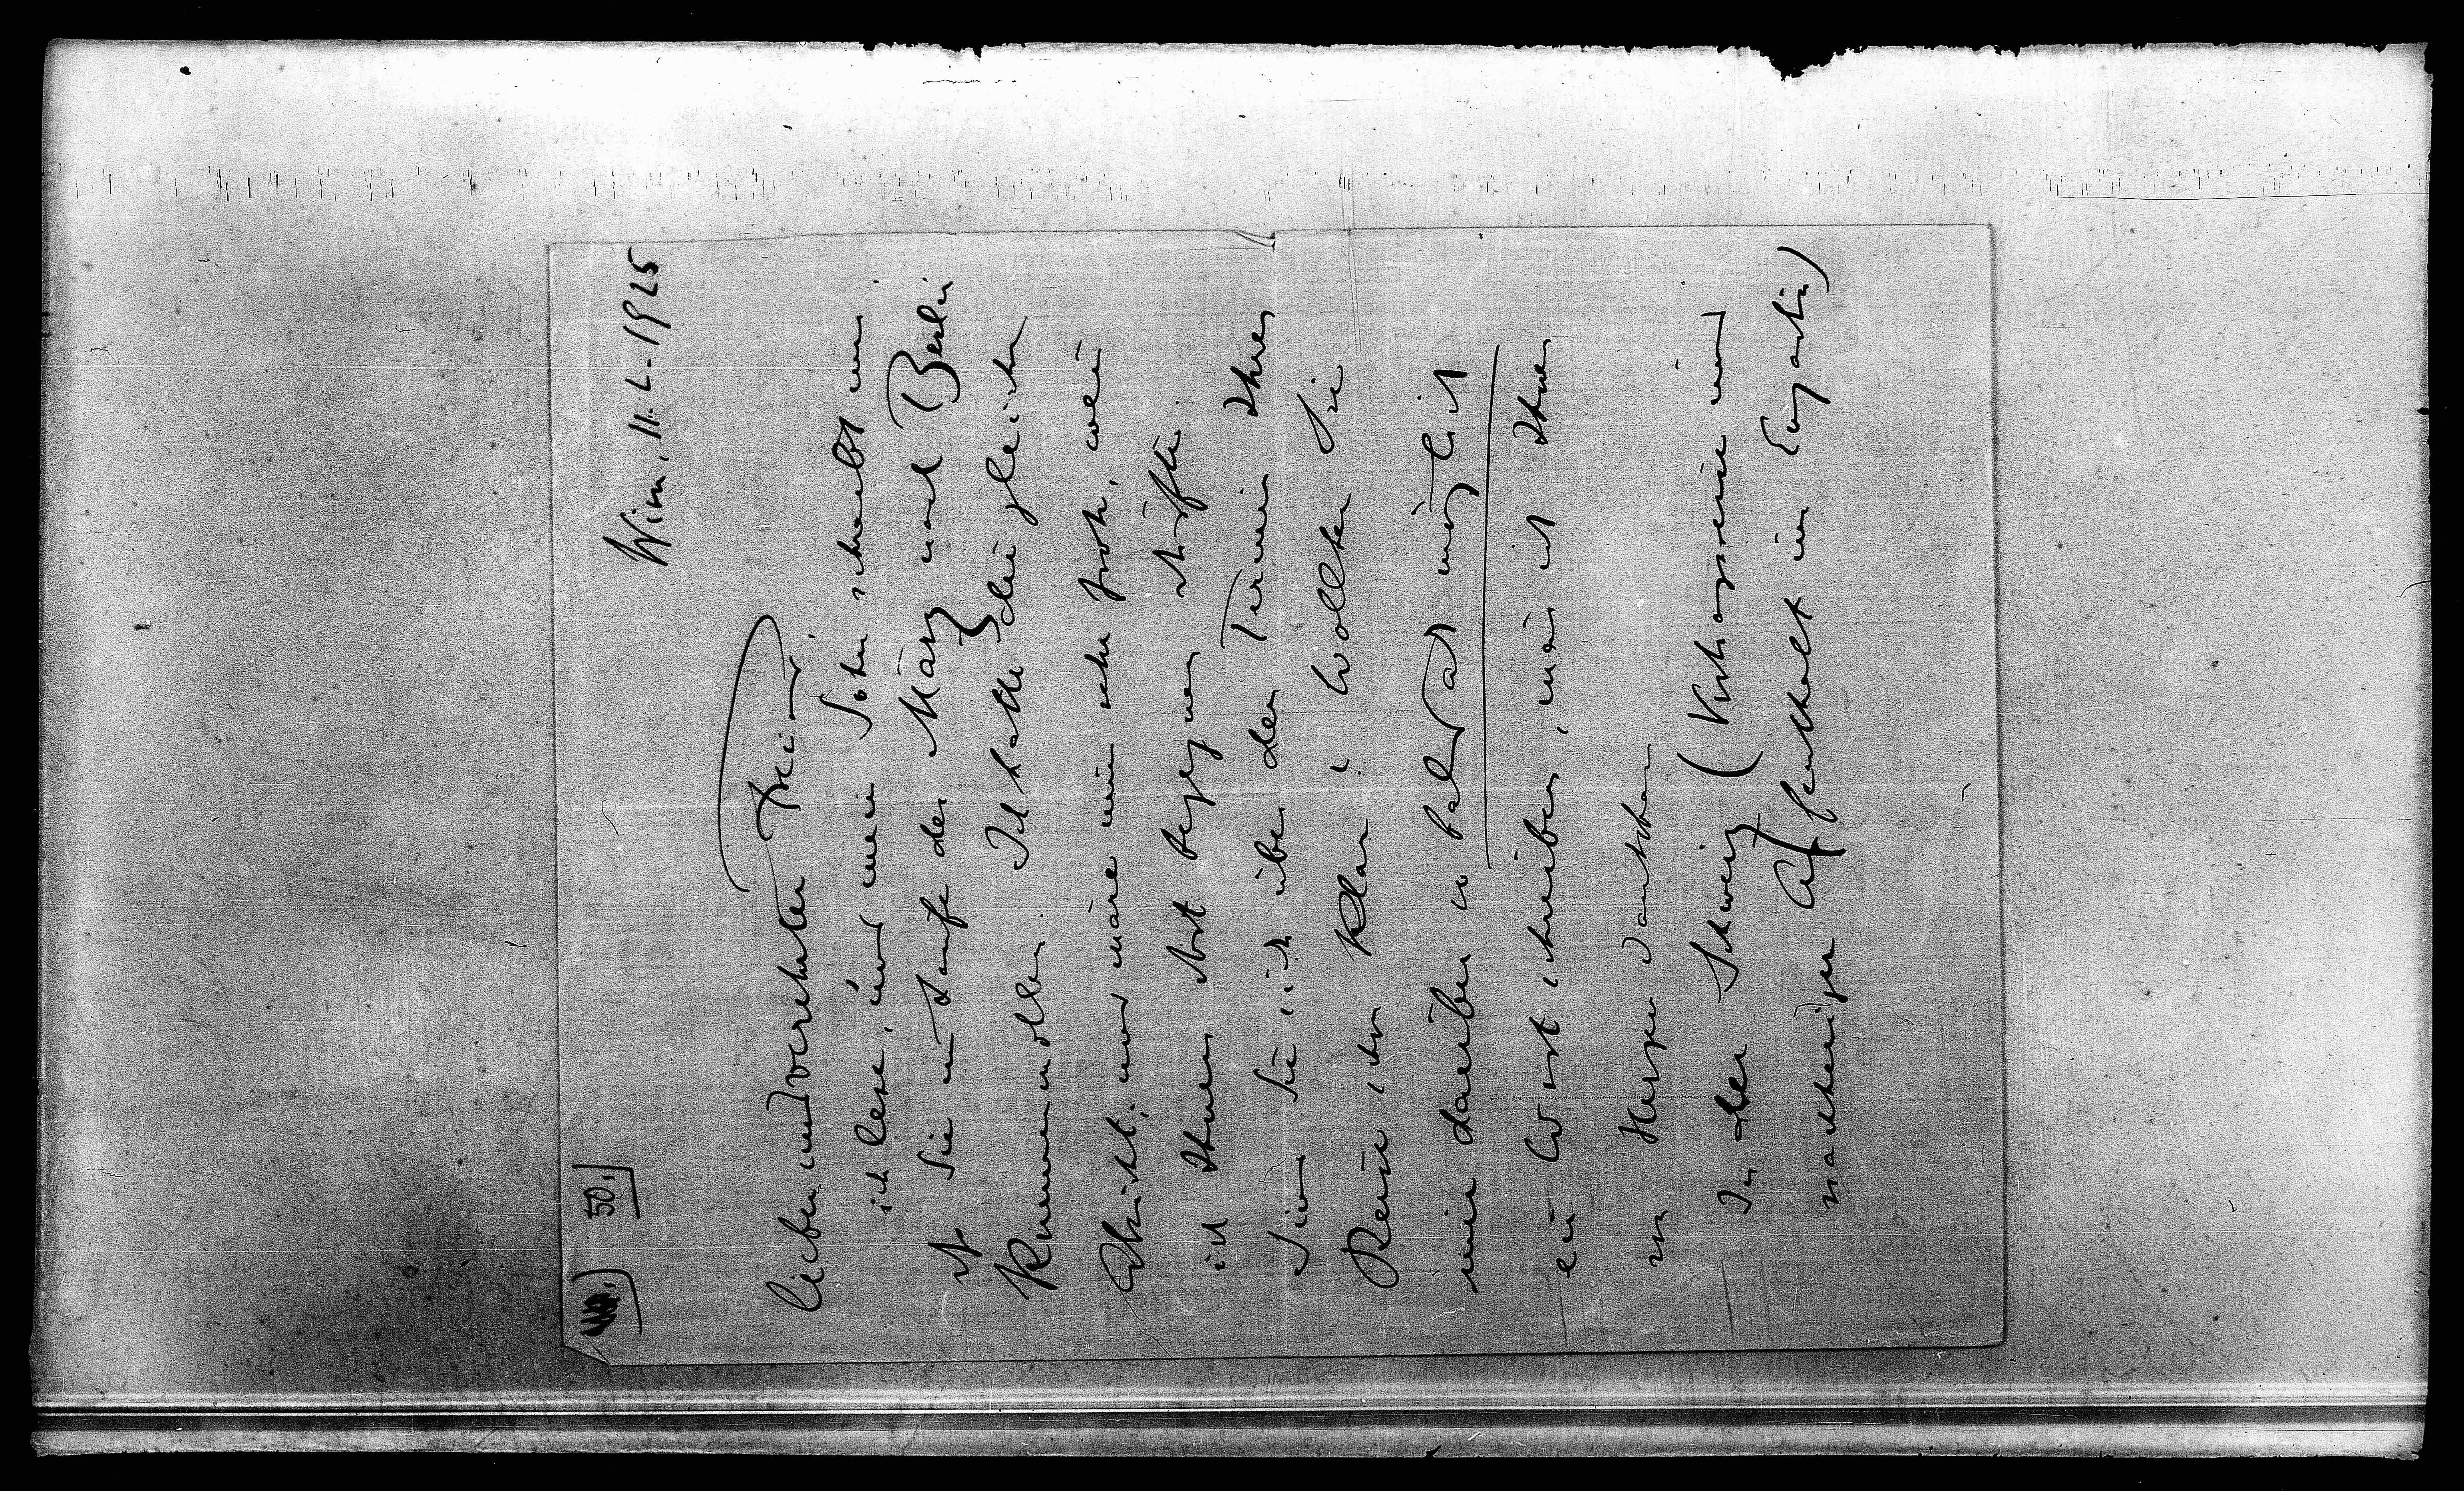 50.
Wien, 11. 2. 1925
Lieber und verehrter Freund
ich lese, und mein Sohn schreibt mir
daß Sie im Laufe des März nach Berlin
kommen wollen. Ich hatte die gleiche
Absicht; und wäre nun sehr froh, wenn
ich Ihnen dort begegnen dürfte.
Sind Sie sich über den Termin Ihrer
Reise schon klar? Wollten Sie
mir darüber so bald als möglich
ein Wort schreiben, wär ich Ihnen
von Herzen dankbar
In der Schweiz (Vortragsreise und
nachheriger Aufenthalt im Engadin)